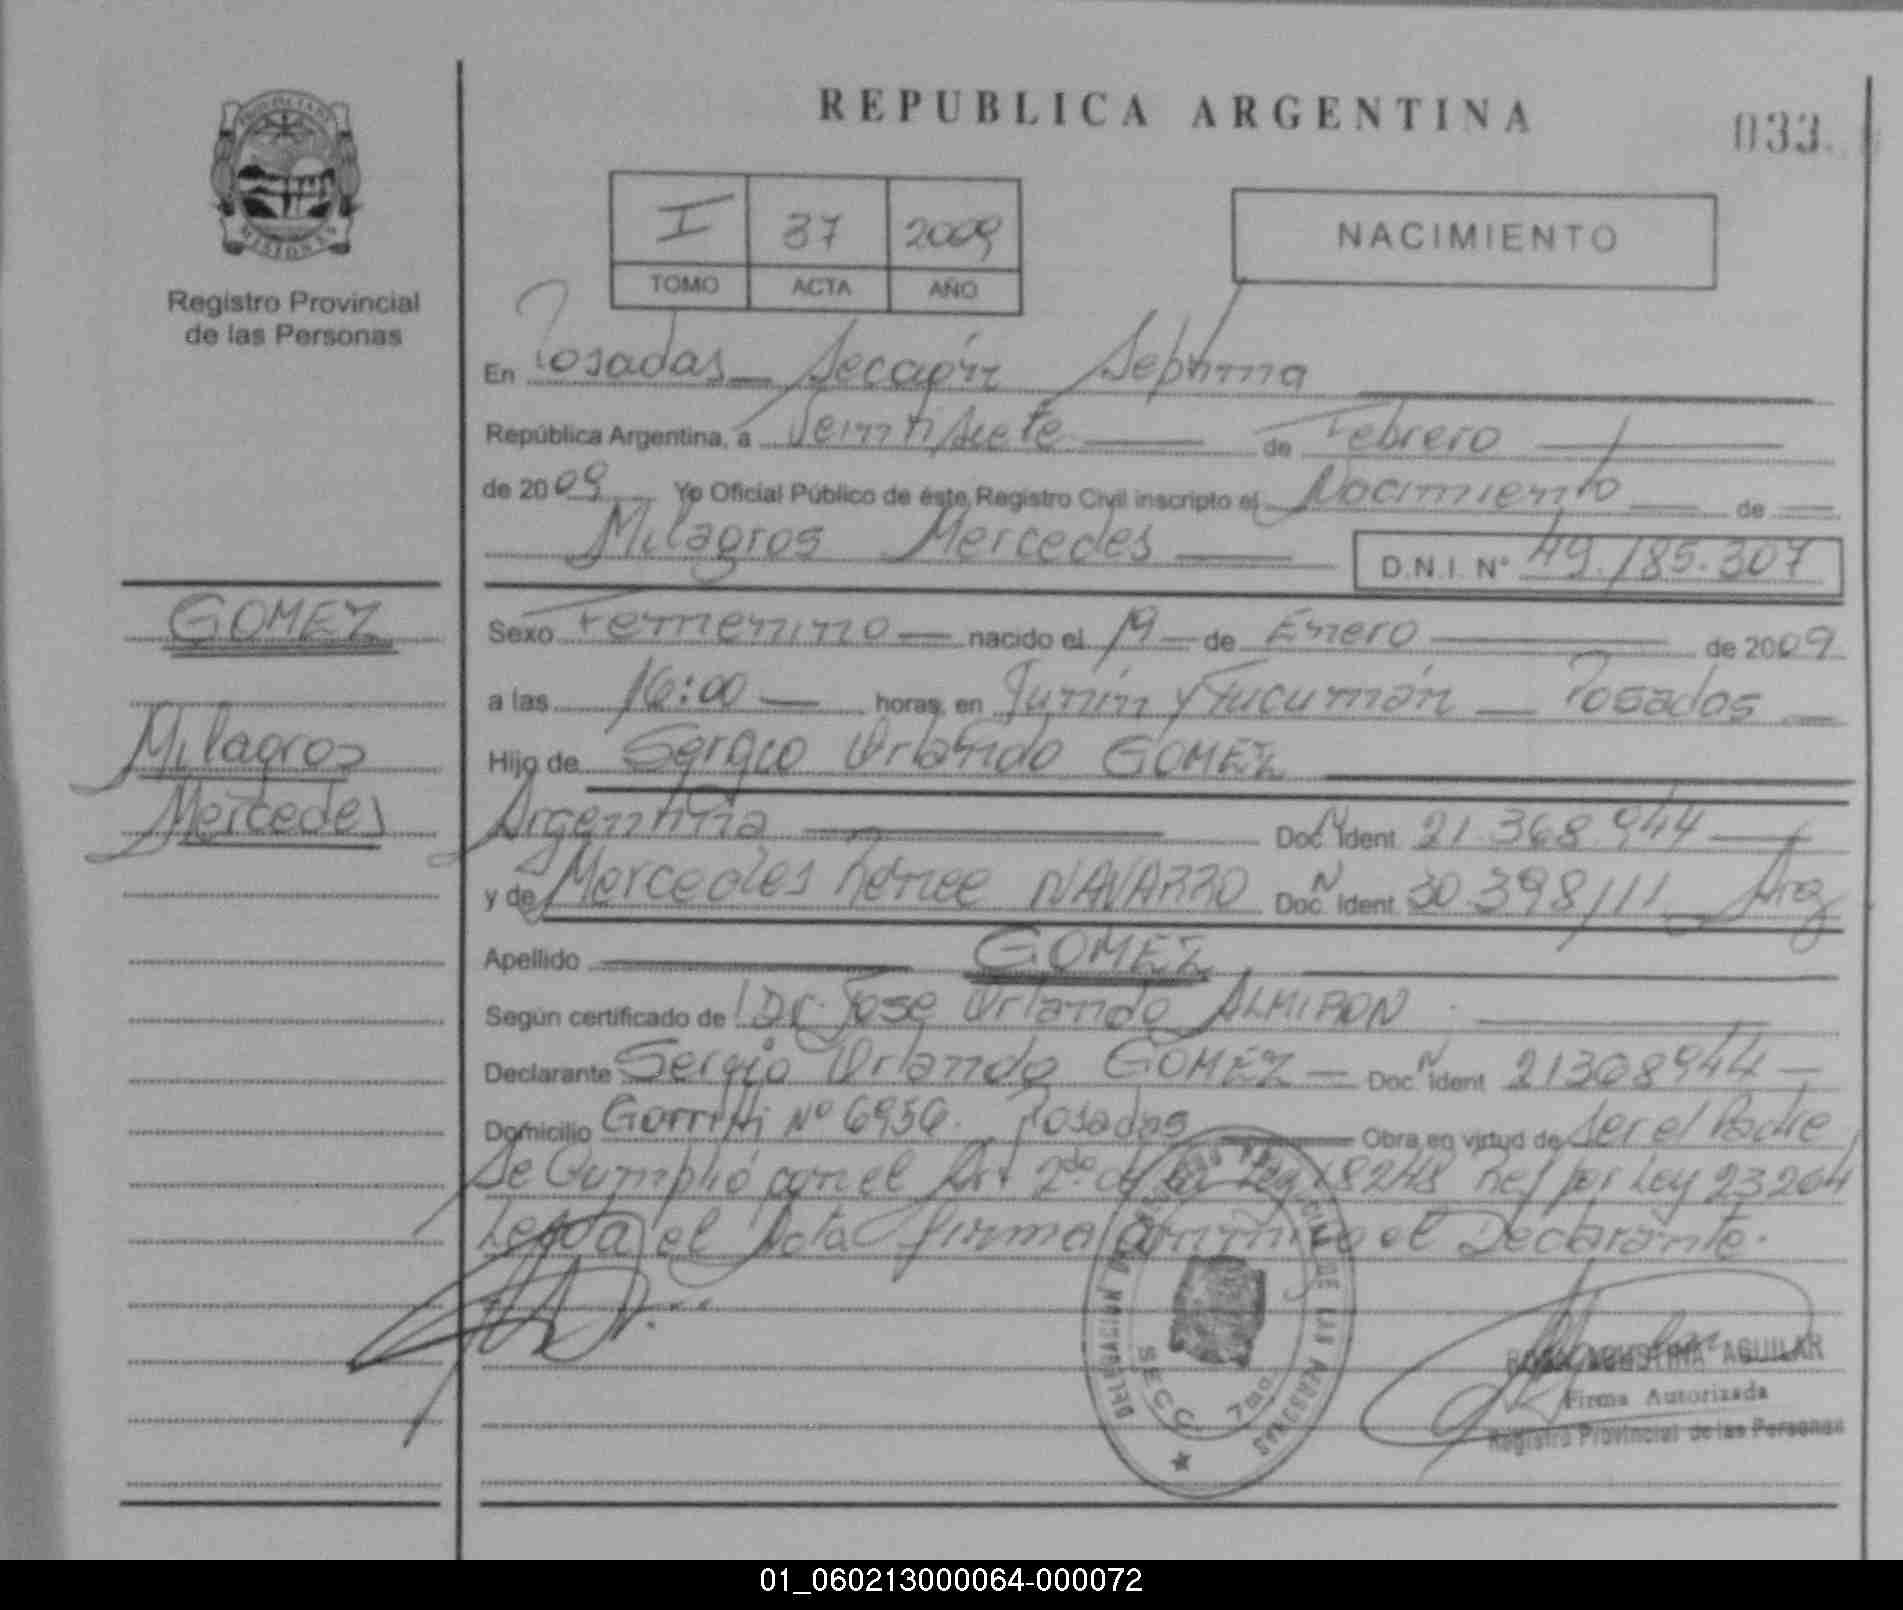 REPUBLICA ARGENTINA
033
PROVINCIA DE MISIONES
Registro Provincial
de las Personas
I 37 2009
TOMO ACTA AÑO
NACIMIENTO
En Posadas Sección Septima
República Argentina, a Veintisiete de Febrero
de 2009 Yo Oficial Público de éste Registro Civil inscripto el Nacimiento de
Milagros Mercedes D.N.I. N° 49.185.307
GOMEZ
Milagros
Mercedes
Sexo Femenino nacido el 19 de Enero de 2009
a las 16:00 horas, en Junín y Tucumán Posadas
Hijo de Sergio Orlando GOMEZ
Argentina Doc. N Ident. 21.368.944
y de Mercedes NAVARRO Doc. N Ident. 30.398.111 Arg
Apellido GOMEZ
Según certificado de Dr. Jose Orlando ALMIRON
Declarante Sergio Orlando GOMEZ Doc. N Ident 21308944
Domicilio Gorriti N° 6956. Posadas Obra en virtud de Ser el Padre
Se Cumplió con el Art 2do de la Ley 18248 Ref por Ley 23264
Leida el Acta firma conmigo el Declarante.
DELEGACION REGISTRO PROVINCIAL DE LAS PERSONAS
SECC. 7ma.
ROSA AGUSTINA AGUILAR
Firma Autorizada
Registro Provincial de las Personas
01_060213000064-000072